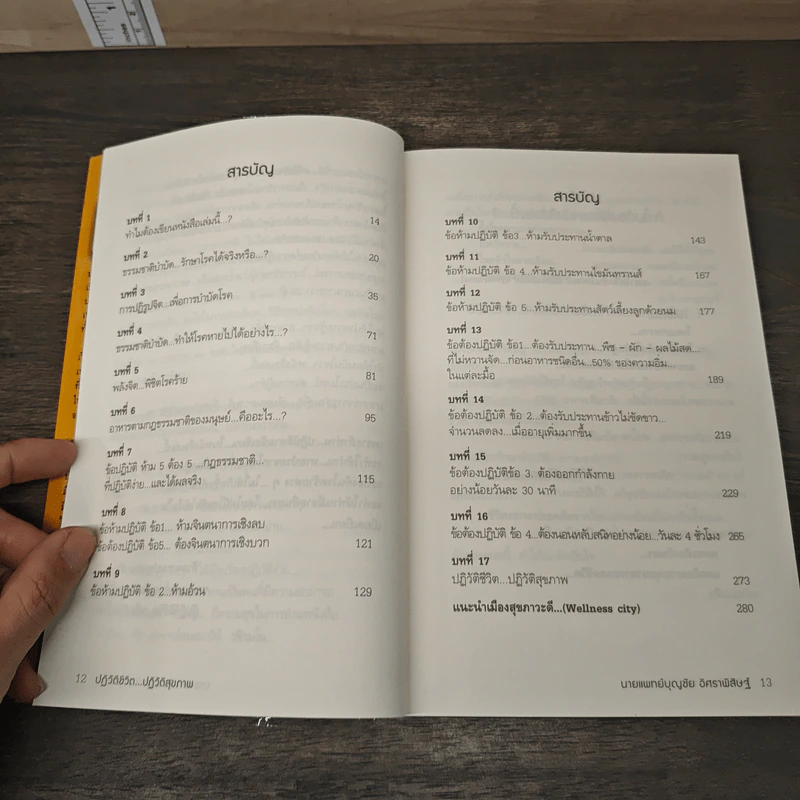 สารบัญ
บทที่ 1
ทำไมต้องเขียนหนังสือเล่มนี้...? 14
บทที่ 2
ธรรมชาติบำบัด...รักษาโรคได้จริงหรือ...? 20
บทที่ 3
การปฏิรูปจิต...เพื่อการบำบัดโรค 35
บทที่ 4
ธรรมชาติบำบัด...ทำให้โรคหายไปได้อย่างไร...? 71
บทที่ 5
พลังจิต...พิชิตโรคร้าย 81
บทที่ 6
อาหารตามกฎธรรมชาติของมนุษย์...คืออะไร...? 95
บทที่ 7
ข้อปฏิบัติ ห้าม 5 ต้อง 5 ...กฎธรรมชาติ...
ที่ปฏิบัติง่าย...และได้ผลจริง 115
บทที่ 8
ข้อห้ามปฏิบัติ ข้อ1... ห้ามจินตนาการเชิงลบ
ข้อต้องปฏิบัติ ข้อ5... ต้องจินตนาการเชิงบวก 121
บทที่ 9
ข้อห้ามปฏิบัติ ข้อ 2...ห้ามอ้วน 129
12 ปฏิวัติชีวิต...ปฏิวัติสุขภาพ
สารบัญ
บทที่ 10
ข้อห้ามปฏิบัติ ข้อ3...ห้ามรับประทานน้ำตาล 143
บทที่ 11
ข้อห้ามปฏิบัติ ข้อ 4...ห้ามรับประทานไขมันทรานส์ 167
บทที่ 12
ข้อห้ามปฏิบัติ ข้อ 5...ห้ามรับประทานสัตว์เลี้ยงลูกด้วยนม 177
บทที่ 13
ข้อต้องปฏิบัติ ข้อ1...ต้องรับประทาน...พืช - ผัก - ผลไม้สด...
ที่ไม่หวานจัด...ก่อนอาหารชนิดอื่น...50% ของความอิ่ม...
ในแต่ละมื้อ 189
บทที่ 14
ข้อต้องปฏิบัติ ข้อ 2...ต้องรับประทานข้าวไม่ขัดขาว...
จำนวนลดลง...เมื่ออายุเพิ่มมากขึ้น 219
บทที่ 15
ข้อต้องปฏิบัติข้อ 3. ต้องออกกำลังกาย
อย่างน้อยวันละ 30 นาที 229
บทที่ 16
ข้อต้องปฏิบัติ ข้อ 4...ต้องนอนหลับสนิทอย่างน้อย...วันละ 4 ชั่วโมง 265
บทที่ 17
ปฏิวัติชีวิต...ปฏิวัติสุขภาพ 273
แนะนำเมืองสุขภาวะดี...(Wellness city) 280
นายแพทย์บุญชัย อิศราพิสิษฐ์ 13